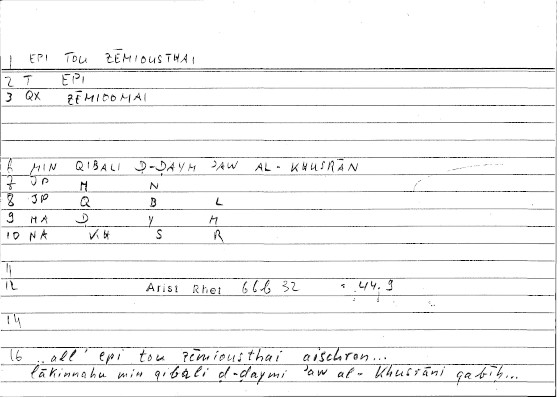 1 EPI TOU ZĒMIOUSTHAI
2 T EPI
3 QX ZĒMIOOMAI
6 MIN QIBALI Ḍ-ḌAYM ʾAW AL-KHUSRĀN
7 JP M N
8 JP Q B L
9 NA Ḍ Y M
10 NA KH S R
11
12 Arist Rhet 66b 32 = 44.9
14
16 „all' epi tou zēmiousthai aischron...
lākinnahu min qibali ḍ-ḍaymi ʾaw al-Khusrāni qabīḥ...